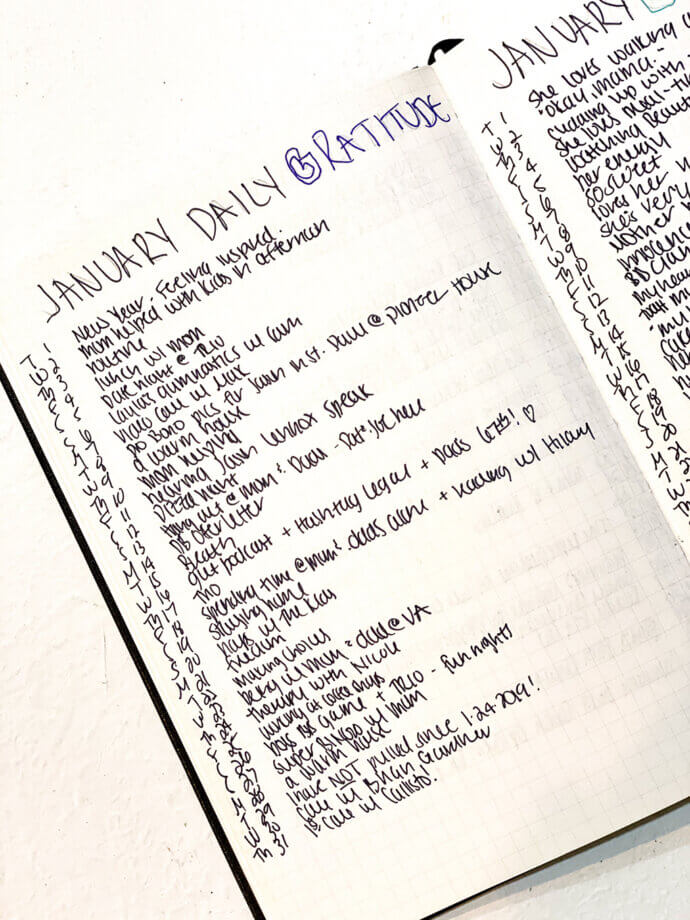 JANUARY DAILY GRATITUDE
T 1 New Year. Feeling inspired.
W 2 mom helped with kids in afternoon
Th 3 routine
F 4 lunch w/ mom
S Date night @ TRIO
S 6 Laura's gymnastics w/ cam
M 7 video call w/ Max
T 8 300 boho pics for Jason in St. Paul @ Pioneer House
W 9 a warm house
Th 10 mom helping
F 11 hearing Jason Lennox speak
S 12 pizza night
S 13 hang out @ mom & Dads - Pat & Joe here
M 14 job offer letter
T 15 Breath
W 16 quit podcast + Hashtag Legal + Dads 67th! ♡
Th 17 TRIO
F 18 spending time @ mom & dads alone + reading w/ Hilary
S 19 staying home
S 20 play w/ the kids
M 21 freedom
T making choices
W being w/ mom & dad @ VA
Th therapy with Nicole
F working at
S 26 boys bb game + TRIO - fun nights
S 27 super bingo w/ mom
M 28 a warm house
T 29 I have NOT pulled since 1.24.2019!
W 30 call w/ Gardner
Th 31 1st call w/ Callisto!
JANUARY
T 1 she loves walking
W 2 "okay mama."
Th 3 cuddling up with
F 4 she loves meal-
watching
S 6 her energy
M 7 so sweet
T 8 loves her
W 9 she's very
Th 10 Mother
F 11 innocence
S 12
S 13 my heart
M 14
T 15
W 16
Th 17
F 18
S 19
S 20
M 21
T
W
Th